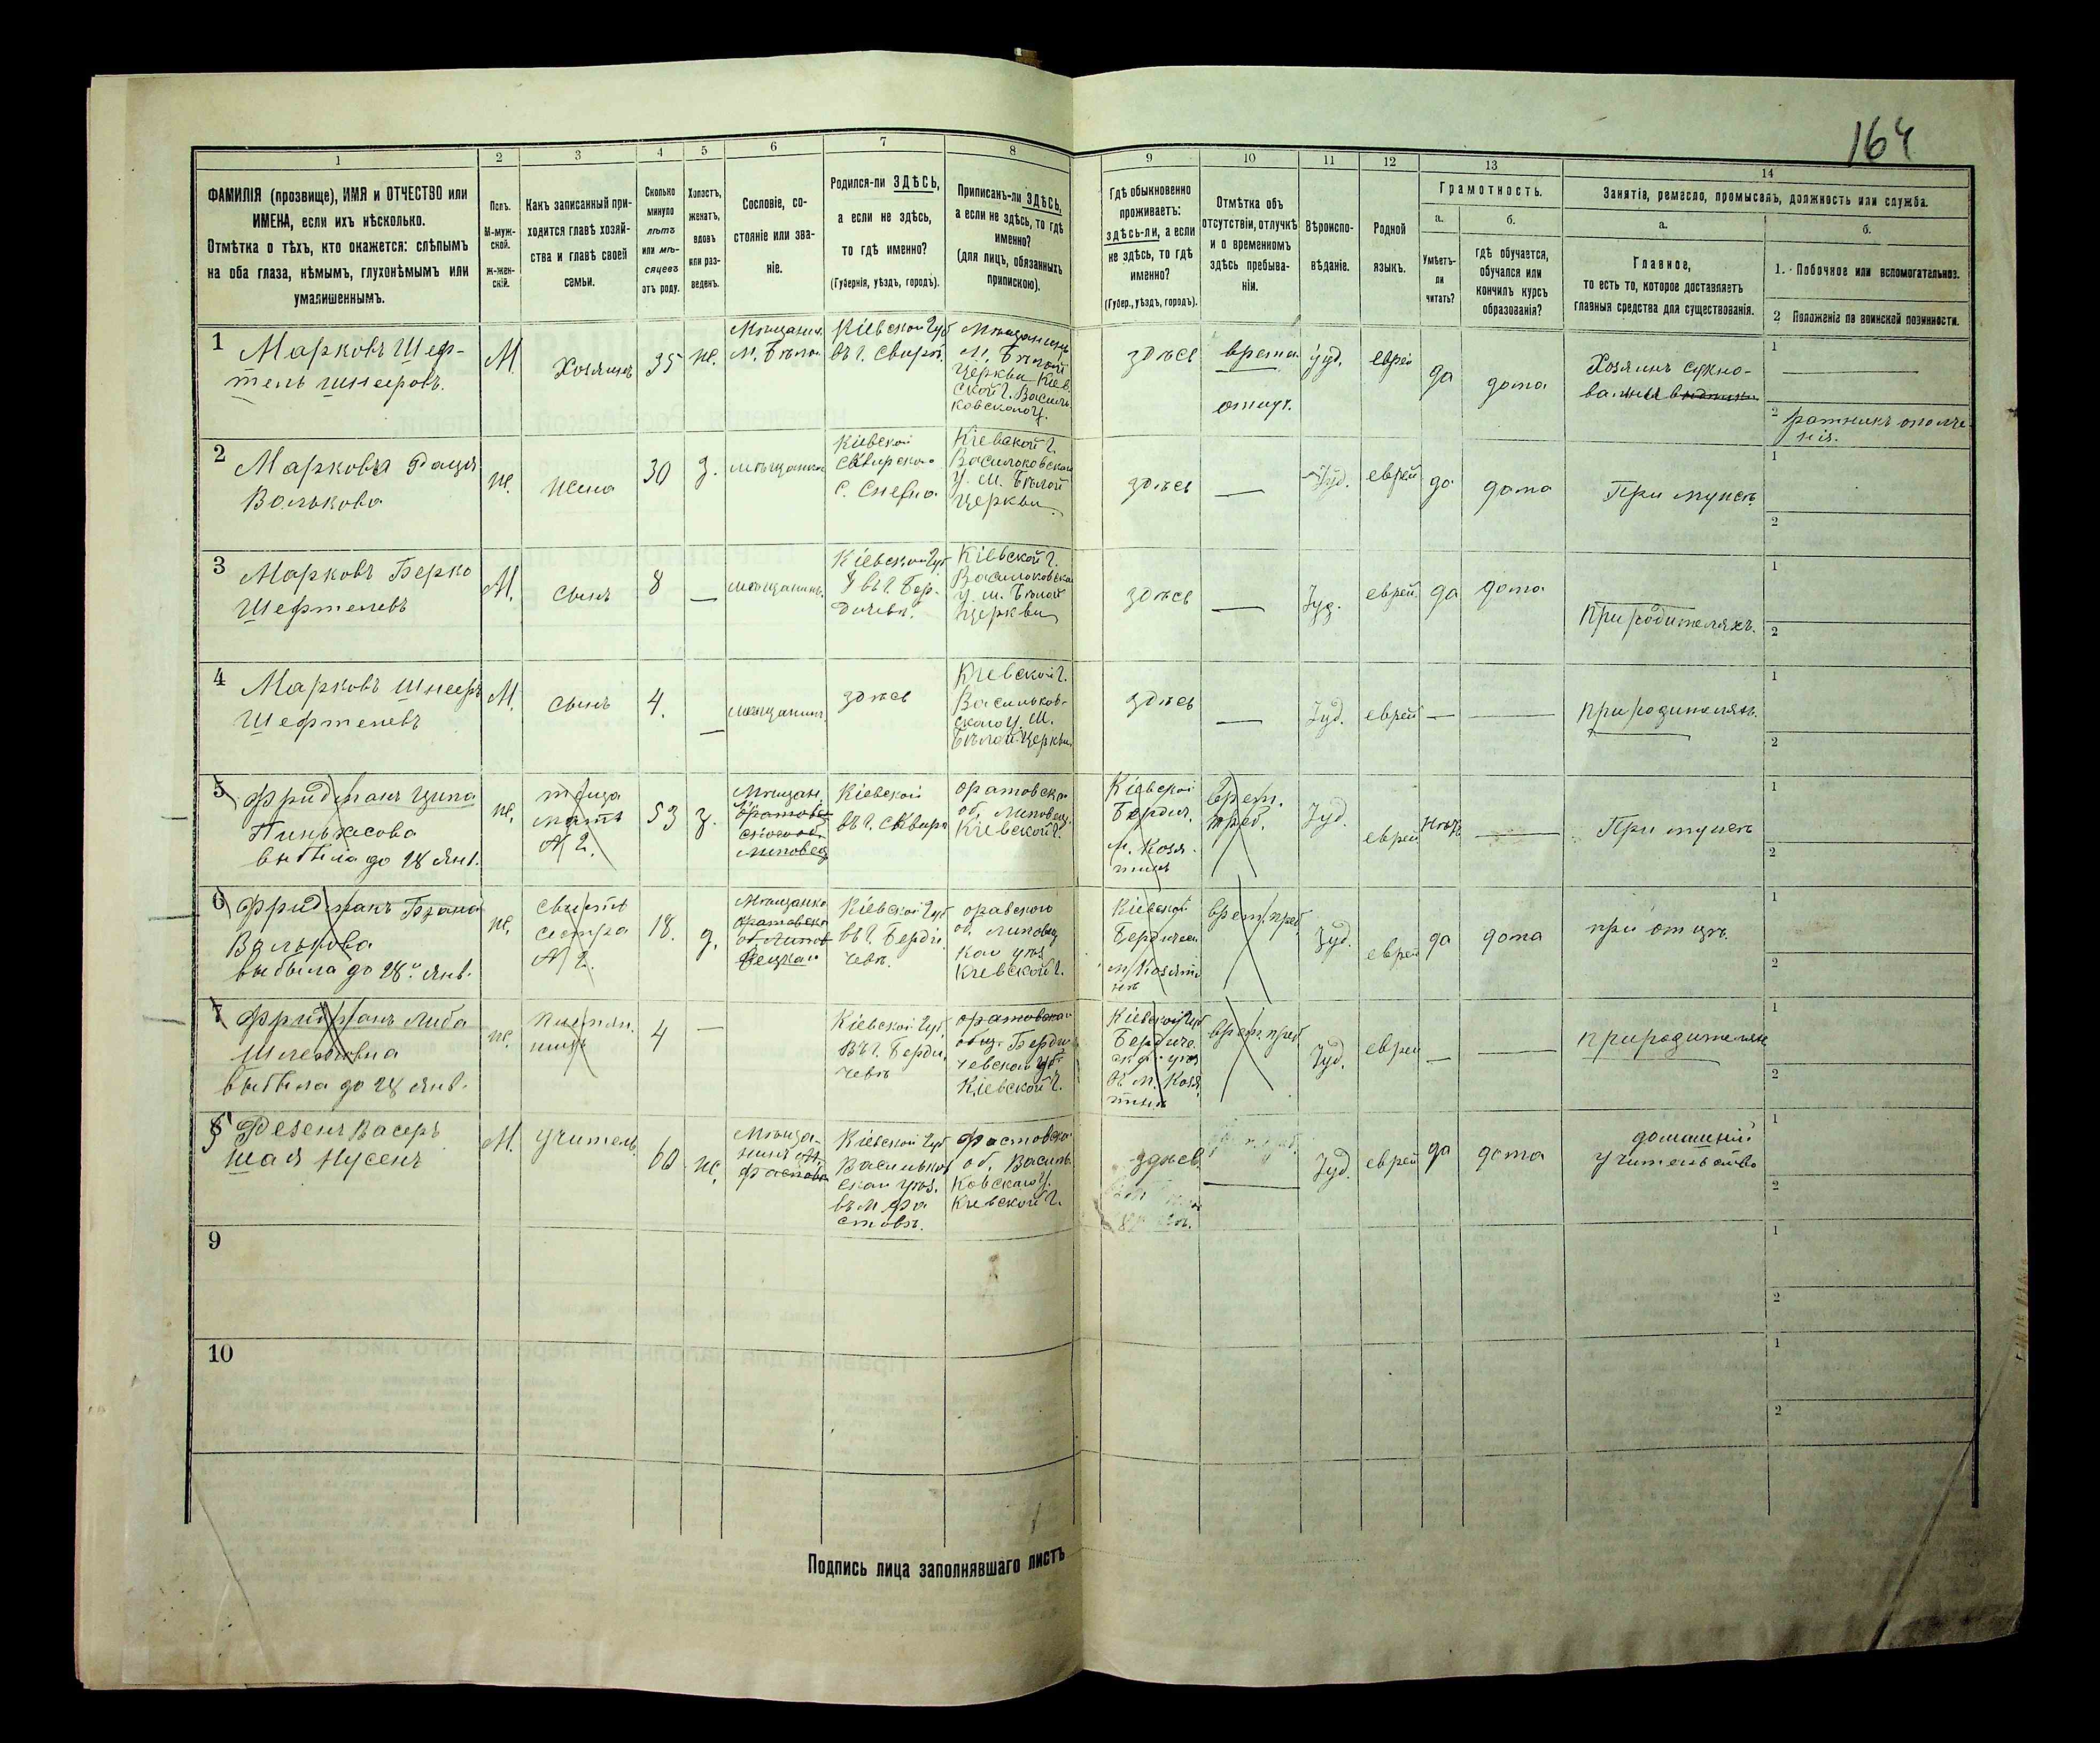 164
1
2
3
4
5
6
7
8
9
10
11
12
13
14
ФАМИЛІЯ (прозвище), ИМЯ и ОТЧЕСТВО или
ИМЕНА, если ихъ нѣсколько.
Отмѣтка о тѣхъ, кто окажется: слѣпымъ
на оба глаза, нѣмымъ, глухонѣмымъ или
умалишеннымъ.
Полъ.
М-муж-
ской.
ж-жен-
скій.
Какъ записанный при-
ходится главѣ хозяй-
ства и главѣ своей
семьи.
Сколько
минуло
лѣтъ
или мѣ-
сяцевъ
отъ роду.
Холостъ,
женатъ,
вдовъ
или раз-
веденъ.
Сословіе, со-
стояніе или зва-
ніе.
Родился-ли ЗДѢСЬ,
а если не здѣсь,
то гдѣ именно?
(Губернія, уѣздъ, городъ).
Приписанъ-ли ЗДѢСЬ,
а если не здѣсь, то гдѣ
именно?
(для лицъ, обязанныхъ
припискою).
Гдѣ обыкновенно
проживаетъ:
здѣсь-ли, а если
не здѣсь, то гдѣ
именно?
(Губер., уѣздъ, городъ).
Отмѣтка объ
отсутствіи, отлучкѣ
и о временномъ
здѣсь пребыва-
ніи.
Вѣроиспо-
вѣданіе.
Родной
языкъ.
Грамотность.
а.
Умѣетъ-
ли
читать?
б.
гдѣ обучается,
обучался или
кончилъ курсъ
образованія?
Занятія, ремесло, промыселъ, должность или служба.
а.
Главное,
то есть то, которое доставляетъ
главныя средства для существованія.
б.
1. Побочное или вспомогательное.
2 Положеніе по воинской повинности.
1
Марковъ Шеф-
тель Шнееровъ.
М.
Хозяинъ
35
же.
Мѣщанин.
м. Бѣлой
Кіевской Губ
въ г. Сквирѣ.
Мѣщанинъ
м. Бѣлой
Церкви Кіев-
ской г. Василь-
ковскаго у.
здѣсь
врем.
отлуч.
Іуд.
еврей
да
дома
Хозяинъ сукно-
1
2 ратникъ ополче-
нія.
2
Волькова
ж.
жена
30
з.
мѣщанка
Кіевской
Сквирскаго
Кіевской г.
Васильковскаго
у. м. Бѣлой
Церкви
здѣсь
—
Іуд.
еврей
да
дома
При мужѣ
1
2
3
Марковъ Берко
Шефтелевъ
М.
сынъ
8
—
мѣщанинъ.
Кіевской Губ
въ г. Бер-
дичевѣ.
Кіевской г.
Васильковска
у. м. Бѣлой
Церкви
здѣсь
—
Іуд.
еврей
да
дома
при родителяхъ.
1
2
4
Марковъ Шнееръ
Шефтелевъ
М.
сынъ
4.
—
мѣщанинъ.
здѣсь
Кіевской г.
Васильков-
скаго у. м.
Бѣлой Церкви
здѣсь
—
Іуд.
еврей
—
—
при родителях.
1
2
5
Фридманъ Ципа
Пинькасова
выбыла до 28 Янв.
ж.
мать
№ 2.
53
з.
Мѣщан.
Кіевской
въ г. Сквирѣ
Оратовска
об. Липовец.
Кіевской г.
Кіевской
Бердич.
м. Козя-
тинъ
врем.
преб.
Іуд.
еврей
Нѣтъ
—
При мужѣ
1
2
6
Волькова
выбыла до 28 Янв.
ж.
сестра
№ 2.
18.
д.
Мѣщанка
Кіевской Губ
въ г. Берди-
чевѣ.
об. Липовец
Кіевской г.
Кіевской
врем. преб.
Іуд.
еврей
да
дома
при отцѣ.
1
2
7
Фридманъ Либа
выбыла до 28 Янв.
ж.
племян.
ница
4
—
Кіевской Губ.
въ г. Берди-
чевѣ
общ. Берди-
чевскаго
Кіевской г.
Кіевской Губ
Бердиче.
м. Козя
тинъ
врем. преб
Іуд.
еврей
—
—
при родителяхъ
1
2
8
Нусенъ
М.
учитель.
60
же.
Мѣща-
нинъ
Кіевской Губ
Васильков
скаго уѣз.
въ м. Фа
стовѣ.
Фастовско
об. Василь-
ковскаго у.
Кіевской г.
здѣсь.
Іуд.
еврей
да
дома
домашній
учительство
1
2
9
1
2
10
1
2
Подпись лица заполнявшаго листъ